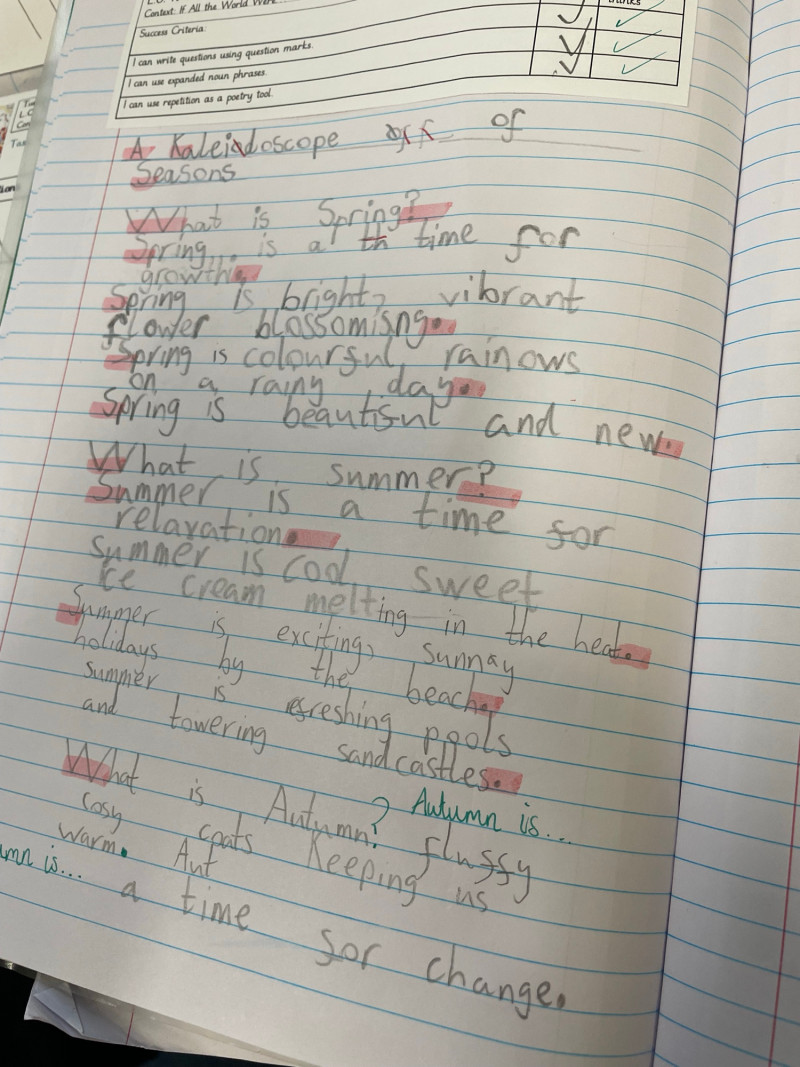 Context: If All the World Were
Success Criteria:
I can write questions using question marks.
I can use expanded noun phrases.
I can use repetition as a poetry tool.
A Kaleidoscope of
Seasons
What is Spring?
Spring... is a time for
growth.
Spring is bright, vibrant
flower blossomisng.
Spring is colourful rainows
on a rainy day.
Spring is beautiful and new.
What is summer?
Summer is a time for
relaxation.
Summer is cool sweet
ice cream melting in the heat.
Summer is exciting, sunnay
holidays by the beach.
summer is efreshing pools
and towering sandcastles.
What is Autumn? Autumn is...
cosy coats fluffy
warm. Keeping us
umn is... Aut
a time for change.